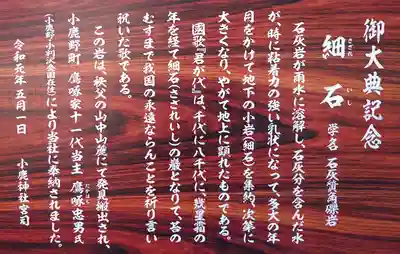 御大典記念
細石
さざれ
いし
学名 石灰質角礫岩
石灰岩が雨水に溶解し、石灰分を含んだ水
が、時に粘着力の強い乳状になって、多大の年
月をかけて地下の小岩(細石)を集約、次第に
大きくなり、やがて地上に顕れたものである。
国歌『君が代』は、千代に八千代に、幾星霜の
年を経て細石(さざれいし)の巌となりて、苔の
むすまで我国の永遠ならんことを祈り言い
祝いた歌である。
この岩は、秩父の山中山麓にて発見搬出され、
小鹿野町 鷹啄家十一代当主 鷹啄忠男氏
たかはし
(小鹿野小判沢飯田在住)により当社に奉納されました。
令和元年五月一日
小鹿神社宮司